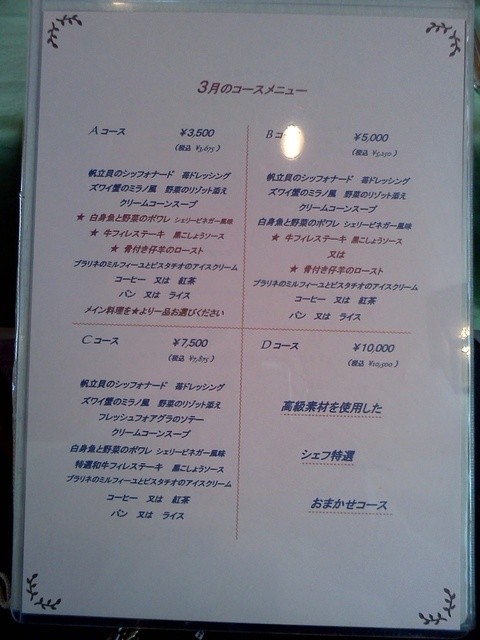 3月のコースメニュー
Aコース ¥3,500
(税込 ¥3,675)
帆立貝のシッフォナード 苺ドレッシング
ズワイ蟹のミラノ風 野菜のリゾット添え
クリームコーンスープ
★ 白身魚と野菜のポワレ シェリービネガー風味
★ 牛フィレステーキ 黒こしょうソース
★ 骨付き仔羊のロースト
プラリネのミルフィーユとピスタチオのアイスクリーム
コーヒー 又は 紅茶
パン 又は ライス
メイン料理を★より一品お選びください
Bコ
¥5,000
(税込 ¥5,250)
帆立貝のシッフォナード 苺ドレッシング
ズワイ蟹のミラノ風 野菜のリゾット添え
クリームコーンスープ
白身魚と野菜のポワレ シェリービネガー風味
★ 牛フィレステーキ 黒こしょうソース
又は
★ 骨付き仔羊のロースト
プラリネのミルフィーユとピスタチオのアイスクリーム
コーヒー 又は 紅茶
パン 又は ライス
Cコース ¥7,500
(税込 ¥7,875)
帆立貝のシッフォナード 苺ドレッシング
ズワイ蟹のミラノ風 野菜のリゾット添え
フレッシュフォアグラのソテー
クリームコーンスープ
白身魚と野菜のポワレ シェリービネガー風味
特選和牛フィレステーキ 黒こしょうソース
プラリネのミルフィーユとピスタチオのアイスクリーム
コーヒー 又は 紅茶
パン 又は ライス
Dコース ¥10,000
(税込 ¥10,500)
高級素材を使用した
シェフ特選
おまかせコース